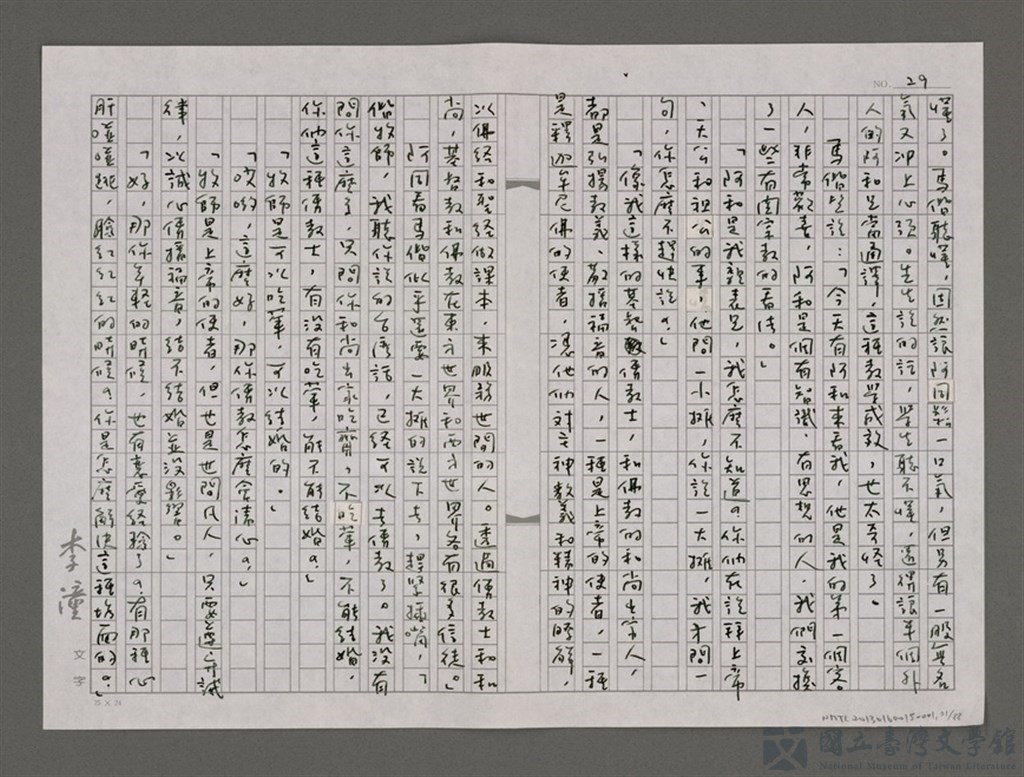 NO. 29
懂了。馬偕聽懂,固然讓阿同鬆一口氣,但另有一股無名
氣又沖上心頭。先生說的話,學生聽不懂,還得讓單個外
人的阿和兄當通譯,這種教學成效,也太奇怪了。
馬偕卻說:「今天有阿和來看我,他是我的第一個客
人,非常歡喜,阿和是個有智識、有思想的人,我們交換
了一些有關宗教的看法。」
「阿和是我親表兄,我怎麼不知道?你們在說拜上帝
、大公和祖公的事,他問一小攤,你說一大攤,我才問一
句,你怎麼不趕快說?」
「像我這樣的基督教傳教士,和佛教的和尚出家人,
都是弘揚教義、散播福音的人,一種是上帝的使者,一種
是釋迦牟尼佛的使者,憑他們對主神教義和精神的瞭解,
以佛經和聖經做課本,來服務世間的人。透過傳教士和和
尚,基督教和佛教在東方世界和西方世界各有很多信徒。」
阿同看馬偕似乎還要一大攤的說下去,趕緊插嘴,「
偕牧師,我聽你說的台灣話,已經可以去傳教了。我沒有
問你這麼多,只問你和尚出家吃齋,不吃葷,不能結婚,
你們這種傳教士,有沒有吃葷,能不能結婚?」
「牧師是可以吃葷,可以結婚的。」
「哎喲,這麼好,那你傳教怎麼會清心?」
「牧師是上帝的使者,但也是世間凡人,只要遵守誡
律,以誠心傳播福音,結不結婚並沒影響。」
「好,那你年輕的時候,也有戀愛經驗了?有那種心
肝噗噗跳,臉紅紅紅的時候?你是怎麼解決這種場面的?」
李潼
文字
25 × 24
國立臺灣文學館
National Museum of Taiwan Literature